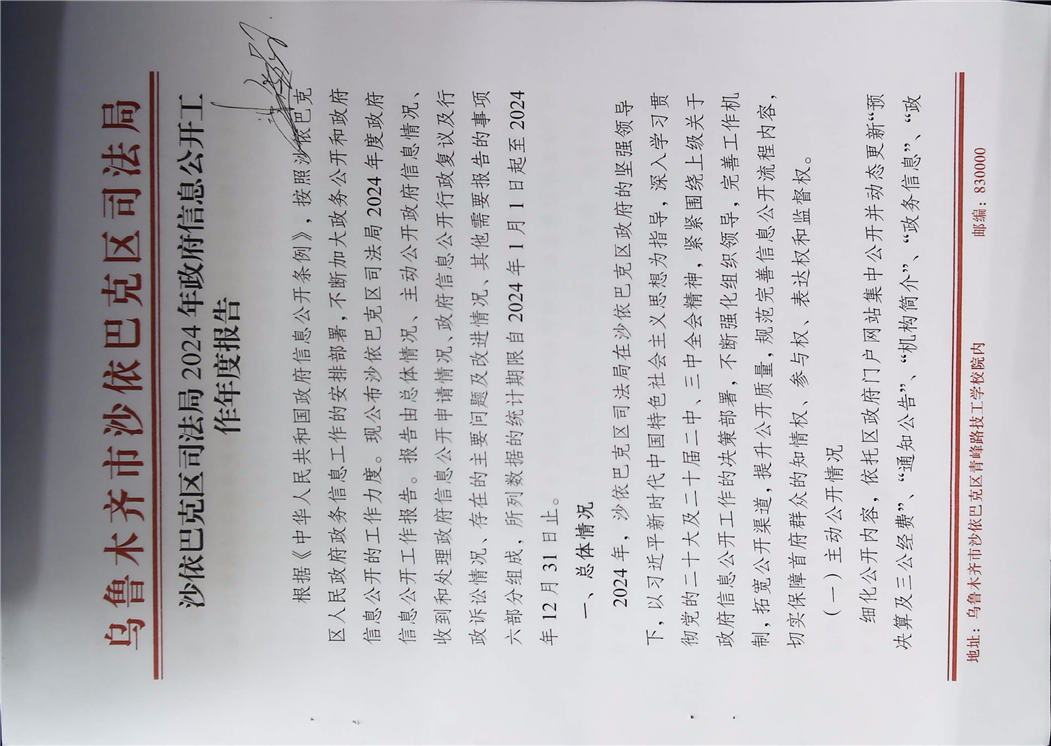 乌鲁木齐市沙依巴克区司法局
沙依巴克区司法局 2024 年政府信息公开工
作年度报告
根据《中华人民共和国政府信息公开条例》，按照沙依巴克
区人民政府政务信息工作的安排部署，不断加大政务公开和政府
信息公开的工作力度。现公布沙依巴克区司法局 2024 年度政府
信息公开工作报告。报告由总体情况、主动公开政府信息情况、
收到和处理政府信息公开申请情况、政府信息公开行政复议及行
政诉讼情况、存在的主要问题及改进情况、其他需要报告的事项
六部分组成，所列数据的统计期限自 2024 年 1 月 1 日起至 2024
年 12 月 31 日止。
一、总体情况
2024 年，沙依巴克区司法局在沙依巴克区政府的坚强领导
下，以习近平新时代中国特色社会主义思想为指导，深入学习贯
彻党的二十大及二十届二中、三中全会精神，紧紧围绕上级关于
政府信息公开工作的决策部署，不断强化组织领导，完善工作机
制，拓宽公开渠道，提升公开质量，规范完善信息公开流程内容，
切实保障首府群众的知情权、参与权、表达权和监督权。
（一）主动公开情况
细化公开内容，依托区政府门户网站集中公开并动态更新“预
决算及三公经费”、“通知公告”、“机构简介”、“政务信息”、“政
地址：乌鲁木齐市沙依巴克区青峰路技工学校院内 邮编：830000